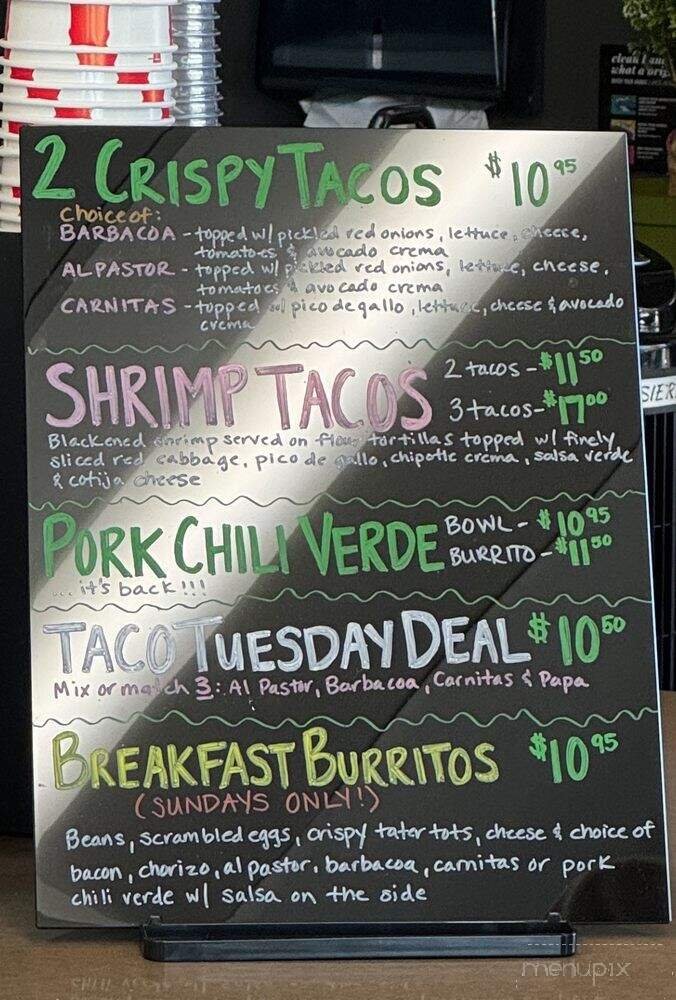 clean
what a
2 CRISPY TACOS $10 95
Choice of:
BARBACOA - topped w/ pickled red onions, lettuce, cheese,
tomatoes & avocado crema
AL PASTOR - topped w/ pickled red onions, lettuce, cheese,
tomatoes & avocado crema
CARNITAS - topped w/ pico de gallo, lettuce, cheese & avocado
crema
SHRIMP TACOS 2 tacos - $11 50
3 tacos - $17 00
Blackened shrimp served on flour tortillas topped w/ finely
sliced red cabbage, pico de gallo, chipotle crema, salsa verde
& cotija cheese
PORK CHILI VERDE BOWL - $10 95
BURRITO - $11 50
... it's back!!!
TACO TUESDAY DEAL $10 50
Mix or match 3: Al Pastor, Barbacoa, Carnitas & Papa
BREAKFAST BURRITOS $10 95
(SUNDAYS ONLY!)
Beans, scrambled eggs, crispy tater tots, cheese & choice of
bacon, chorizo, al pastor, barbacoa, carnitas or pork
chili verde w/ salsa on the side
menupix